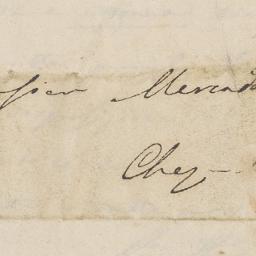 sieur Mercad
Chez